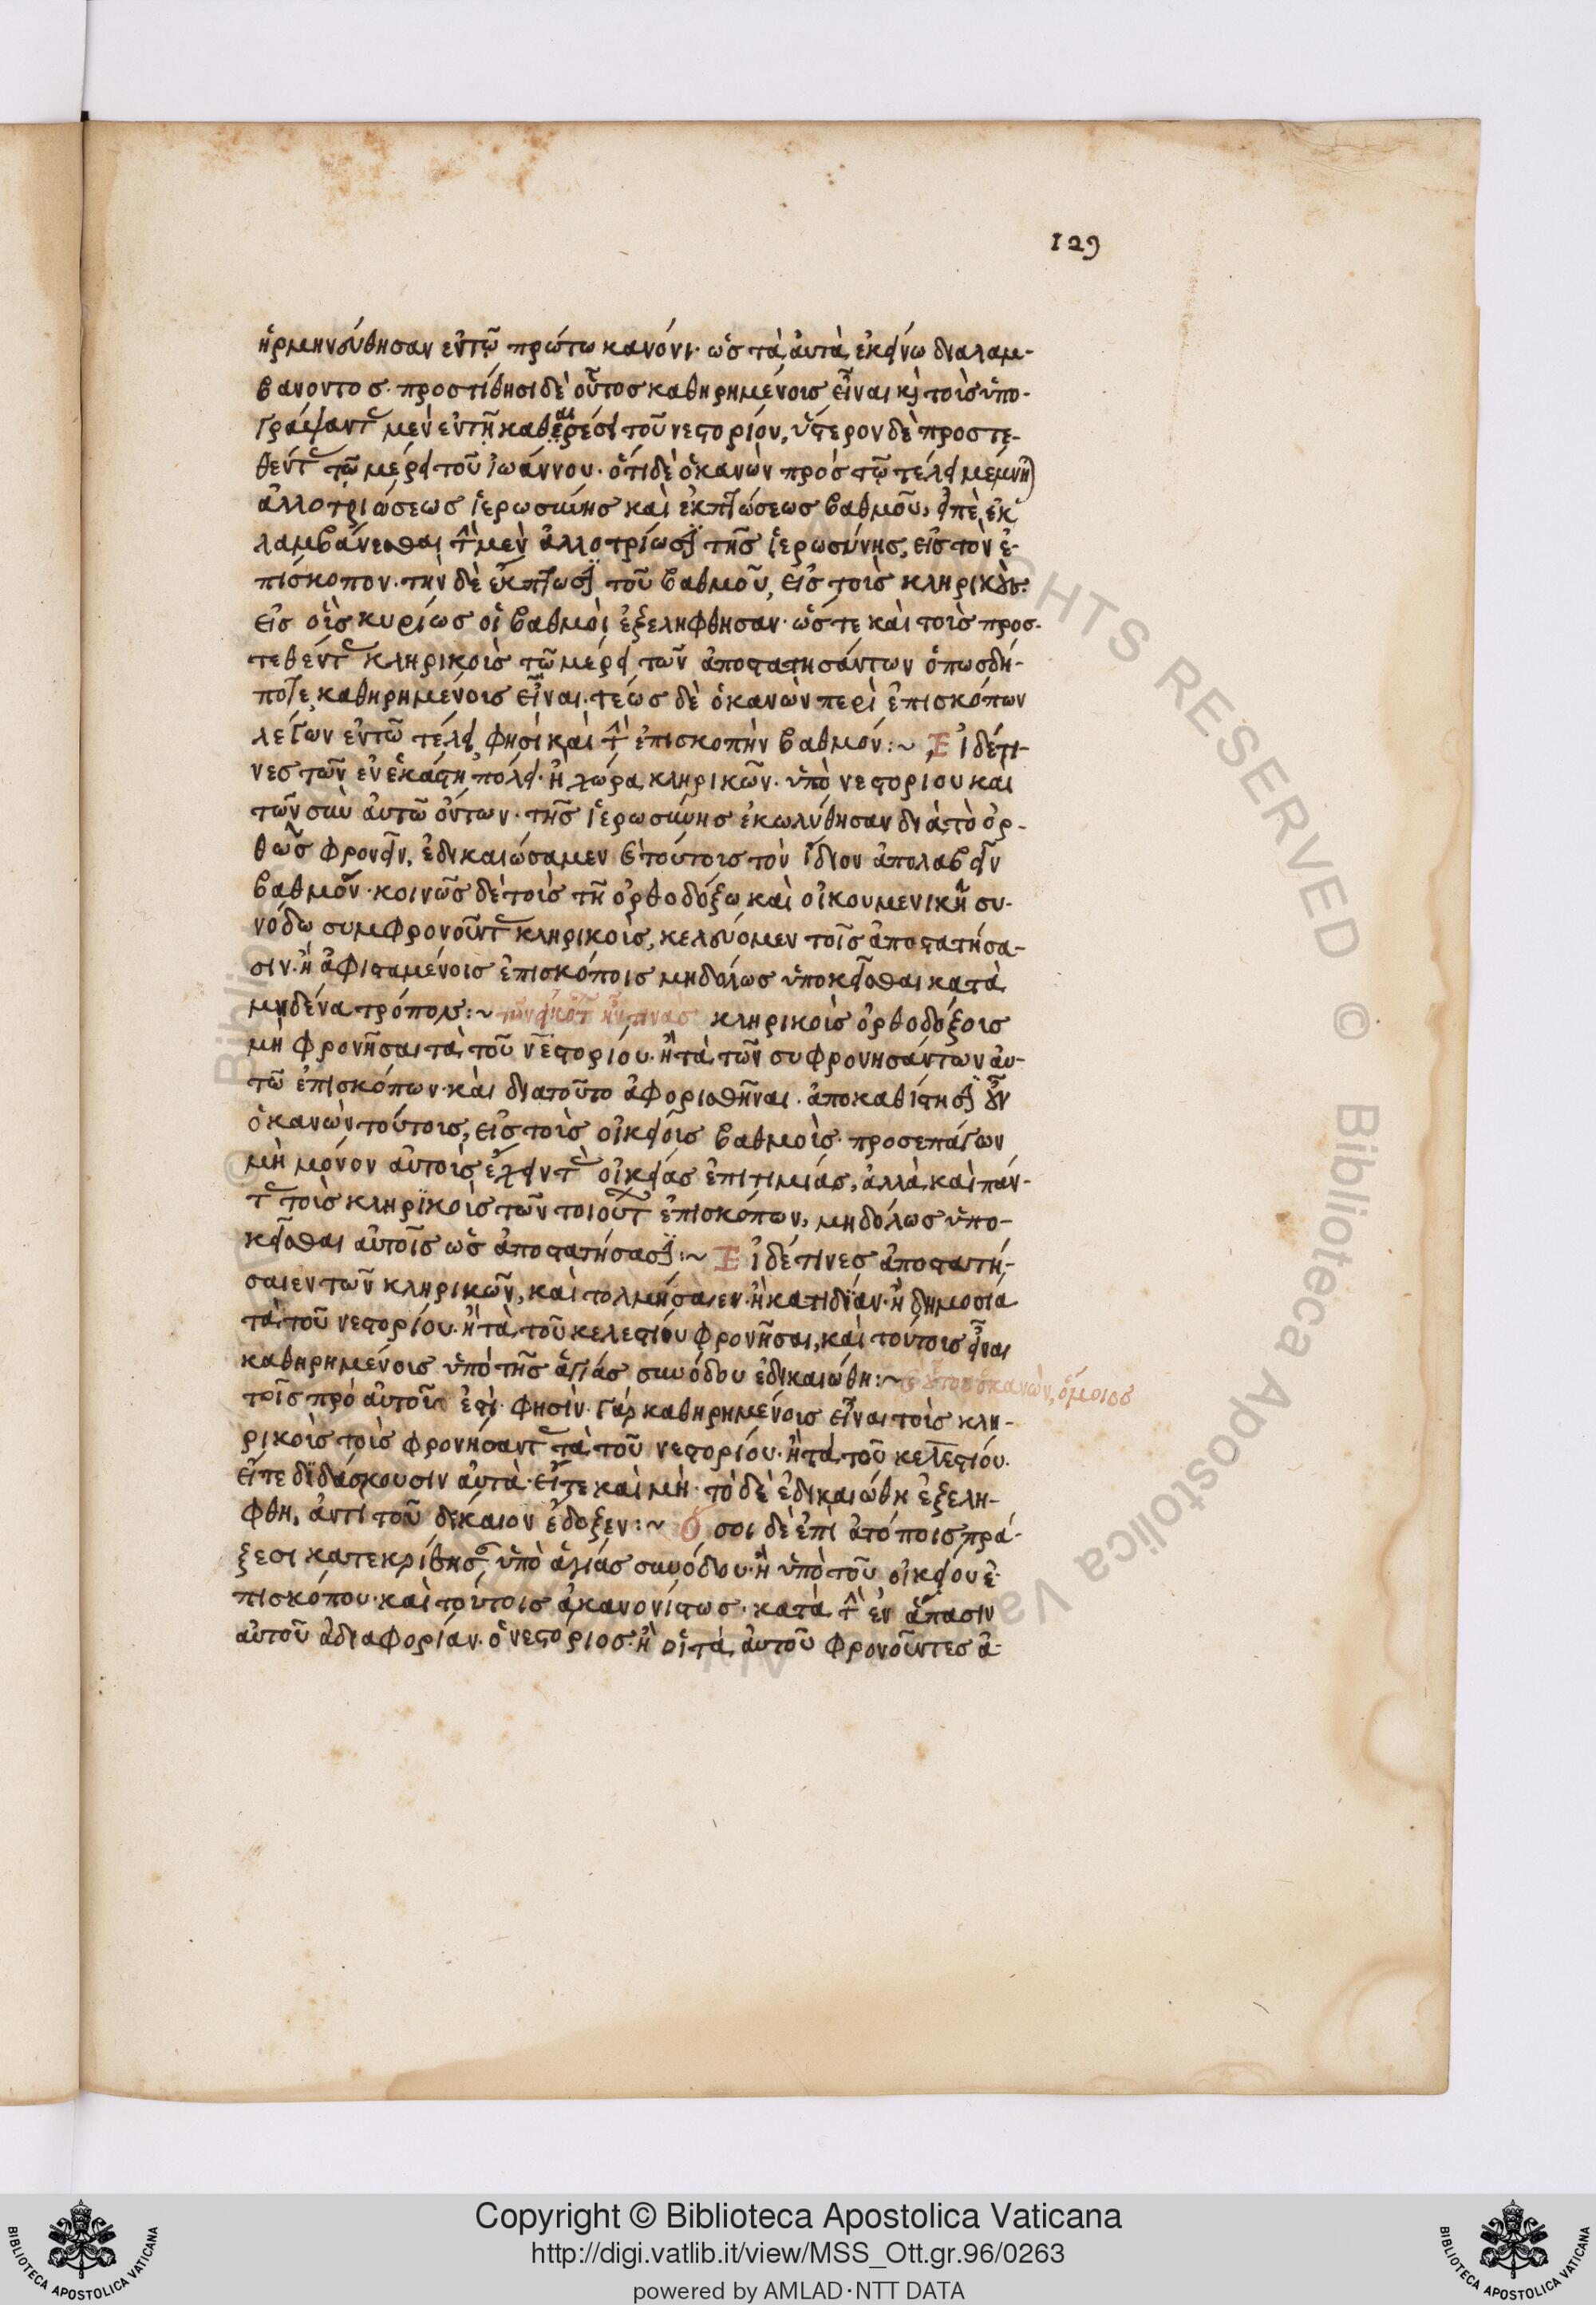 129
ἡρμηνεύθησαν ἐν τῷ πρώτω κανόνι· ὡς τὰ αὐτὰ ἐκείνω διαλαμ-
βανοντος. προστίθησι δὲ οὗτος καθηρημένοις εἶναι κὶ τοῖς ὑπο-
γράψαντ μὲν ἐν τῆ καθερέσει τοῦ νεστορίου, ὕστερον δὲ προστε-
θέντ τῷ μέρει τοῦ ἰωάννου. ὅτι δὲ ὁ κανὼν πρὸς τῷ τέλει μέμνη
ἀλλοτριώσεως ἱερωσύνης καὶ ἐκπτώσεως βαθμοῦ, εἰπὲ ἐκ
λαμβάνεσθαι τ μὲν ἀλλοτρίωσϊ τῆς ἱερωσύνης, εἰς τὸν ἐ-
πίσκοπον. τὴν δὲ ἔκπτωσϊ τοῦ βαθμοῦ, εἰς τοῖς κληρικοὺς.
εἰς οἷς κυρίως οἱ βαθμοὶ ἐξελήφθησαν· ὥστε καὶ τοῖς προσ-
τεθέντ κληρικοῖς τῷ μέρει τῶν ἀποστατησάντων ὁπωσδή-
ποτε καθηρημένοις εἶναι. τέως δὲ ὁ κανὼν περὶ ἐπισκόπων
λέγων ἐν τῷ τέλει φησὶ καὶ τ ἐπισκοπὴν βαθμόν:~ Εἰ δέ τι-
νες τῶν ἐν ἑκάστη πόλει· ἢ χώρα κληρικῶν· ὑπὸ νεστορίου καὶ
τῶν σὺν αὐτῶ ὄντων· τῆς ἱερωσύνης ἐκωλύθησαν διὰ τὸ ὀρ-
θῶς φρονεῖν, ἐδικαιώσαμεν τούτοις τὸν ἴδιον ἀπολαβεῖν
βαθμὸν· κοινῶς δὲ τοῖς τῆ ὀρθοδόξω καὶ οἰκουμενικῆ συ-
νόδω συμφρονοῦντ κληρικοῖς, κελεύομεν τοῖς ἀποστατήσα-
σιν· ἢ ἀφισταμένοις ἐπισκόποις μηδόλως ὑποκεῖσθαι κατὰ
μηδένα τρόπον:~ κληρικοῖς ὀρθοδόξοις
μὴ φρονῆσαι τὰ τοῦ νεστορίου. ἢ τὰ τῶν συφρονησάντων αυ-
τῶ ἐπισκόπων· καὶ διατοῦτο ἀφορισθῆναι. ἀποκαθίστησϊ οὖν
ὁ κανὼν τούτοις, εἰς τοῖς οἰκείοις βαθμοῖς· προσεπάγων
μὴ μόνον αὐτοῖς οἰκείας ἐπιτιμίας, ἀλλὰ καὶ πάν-
τ τοῖς κληρϊκοῖς τῶν τοιούτ ἐπισκόπων, μηδόλως ὑπο-
κεῖσθαι αὐτοῖς ὡς ἀποστατήσασϊ:~ Εἰ δέ τινες ἀποστατή-
σαιεν τῶν κληρικῶν, καὶ τολμήσαιεν· ἢ κατιδίαν· ἢ δημοσία
τὰ τοῦ νεστορίου. ἢ τὰ τοῦ κελεστίου φρονῆσαι, καὶ τούτοις εἶναι
καθηρημένοις ὑπὸ τῆς ἁγίας συνόδου ἐδικαιώθη:~ οὗτος ὁ κανὼν, ὅμοιος
τοῖς πρὸ αὐτοῦ ἐστὶ. φησὶν γὰρ καθηρημένοις εἶναι τοῖς κλη-
ρικοῖς τοῖς φρονήσαντ τὰ τοῦ νεστορίου. ἢ τὰ τοῦ κελεστίου.
εἴτε διδάσκουσιν αὐτὰ· εἴτε καὶ μὴ· τὸ δὲ ἐδικαιώθη ἐξελή-
φθη, ἀντὶ τοῦ δίκαιον ἔδοξεν:~ Ὅσοι δὲ ἐπὶ ἀτόποις πρά-
ξεσι κατεκρίθησ ὑπὸ ἁγίας συνόδου· ἢ ὑπὸ τοῦ οἰκείου ἐ-
πισκόπου· καὶ τούτοις ἀκανονίστως· κατὰ τ ἐν ἅπασιν
αὐτοῦ ἀδιαφορίαν. ὁ νεστόριος. ἢ οἱ τὰ αὐτοῦ φρονοῦντες ἀ-
© Biblioteca Apostolica Vaticana
RIGHTS RESERVED
Copyright © Biblioteca Apostolica Vaticana
http://digi.vatlib.it/view/MSS_Ott.gr.96/0263
powered by AMLAD·NTT DATA
BIBLIOTECA APOSTOLICA VATICANA
BIBLIOTECA APOSTOLICA VATICANA